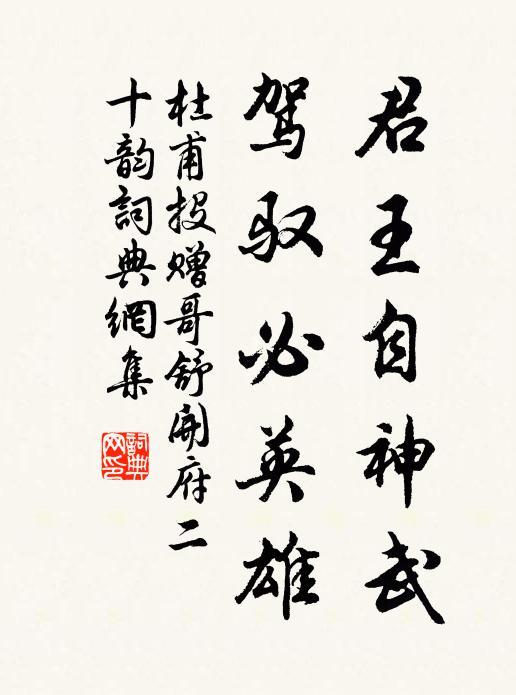 君王自神武
驾驭必英雄
杜甫投赠哥舒開府二
十韵詞典網集
詞典网印